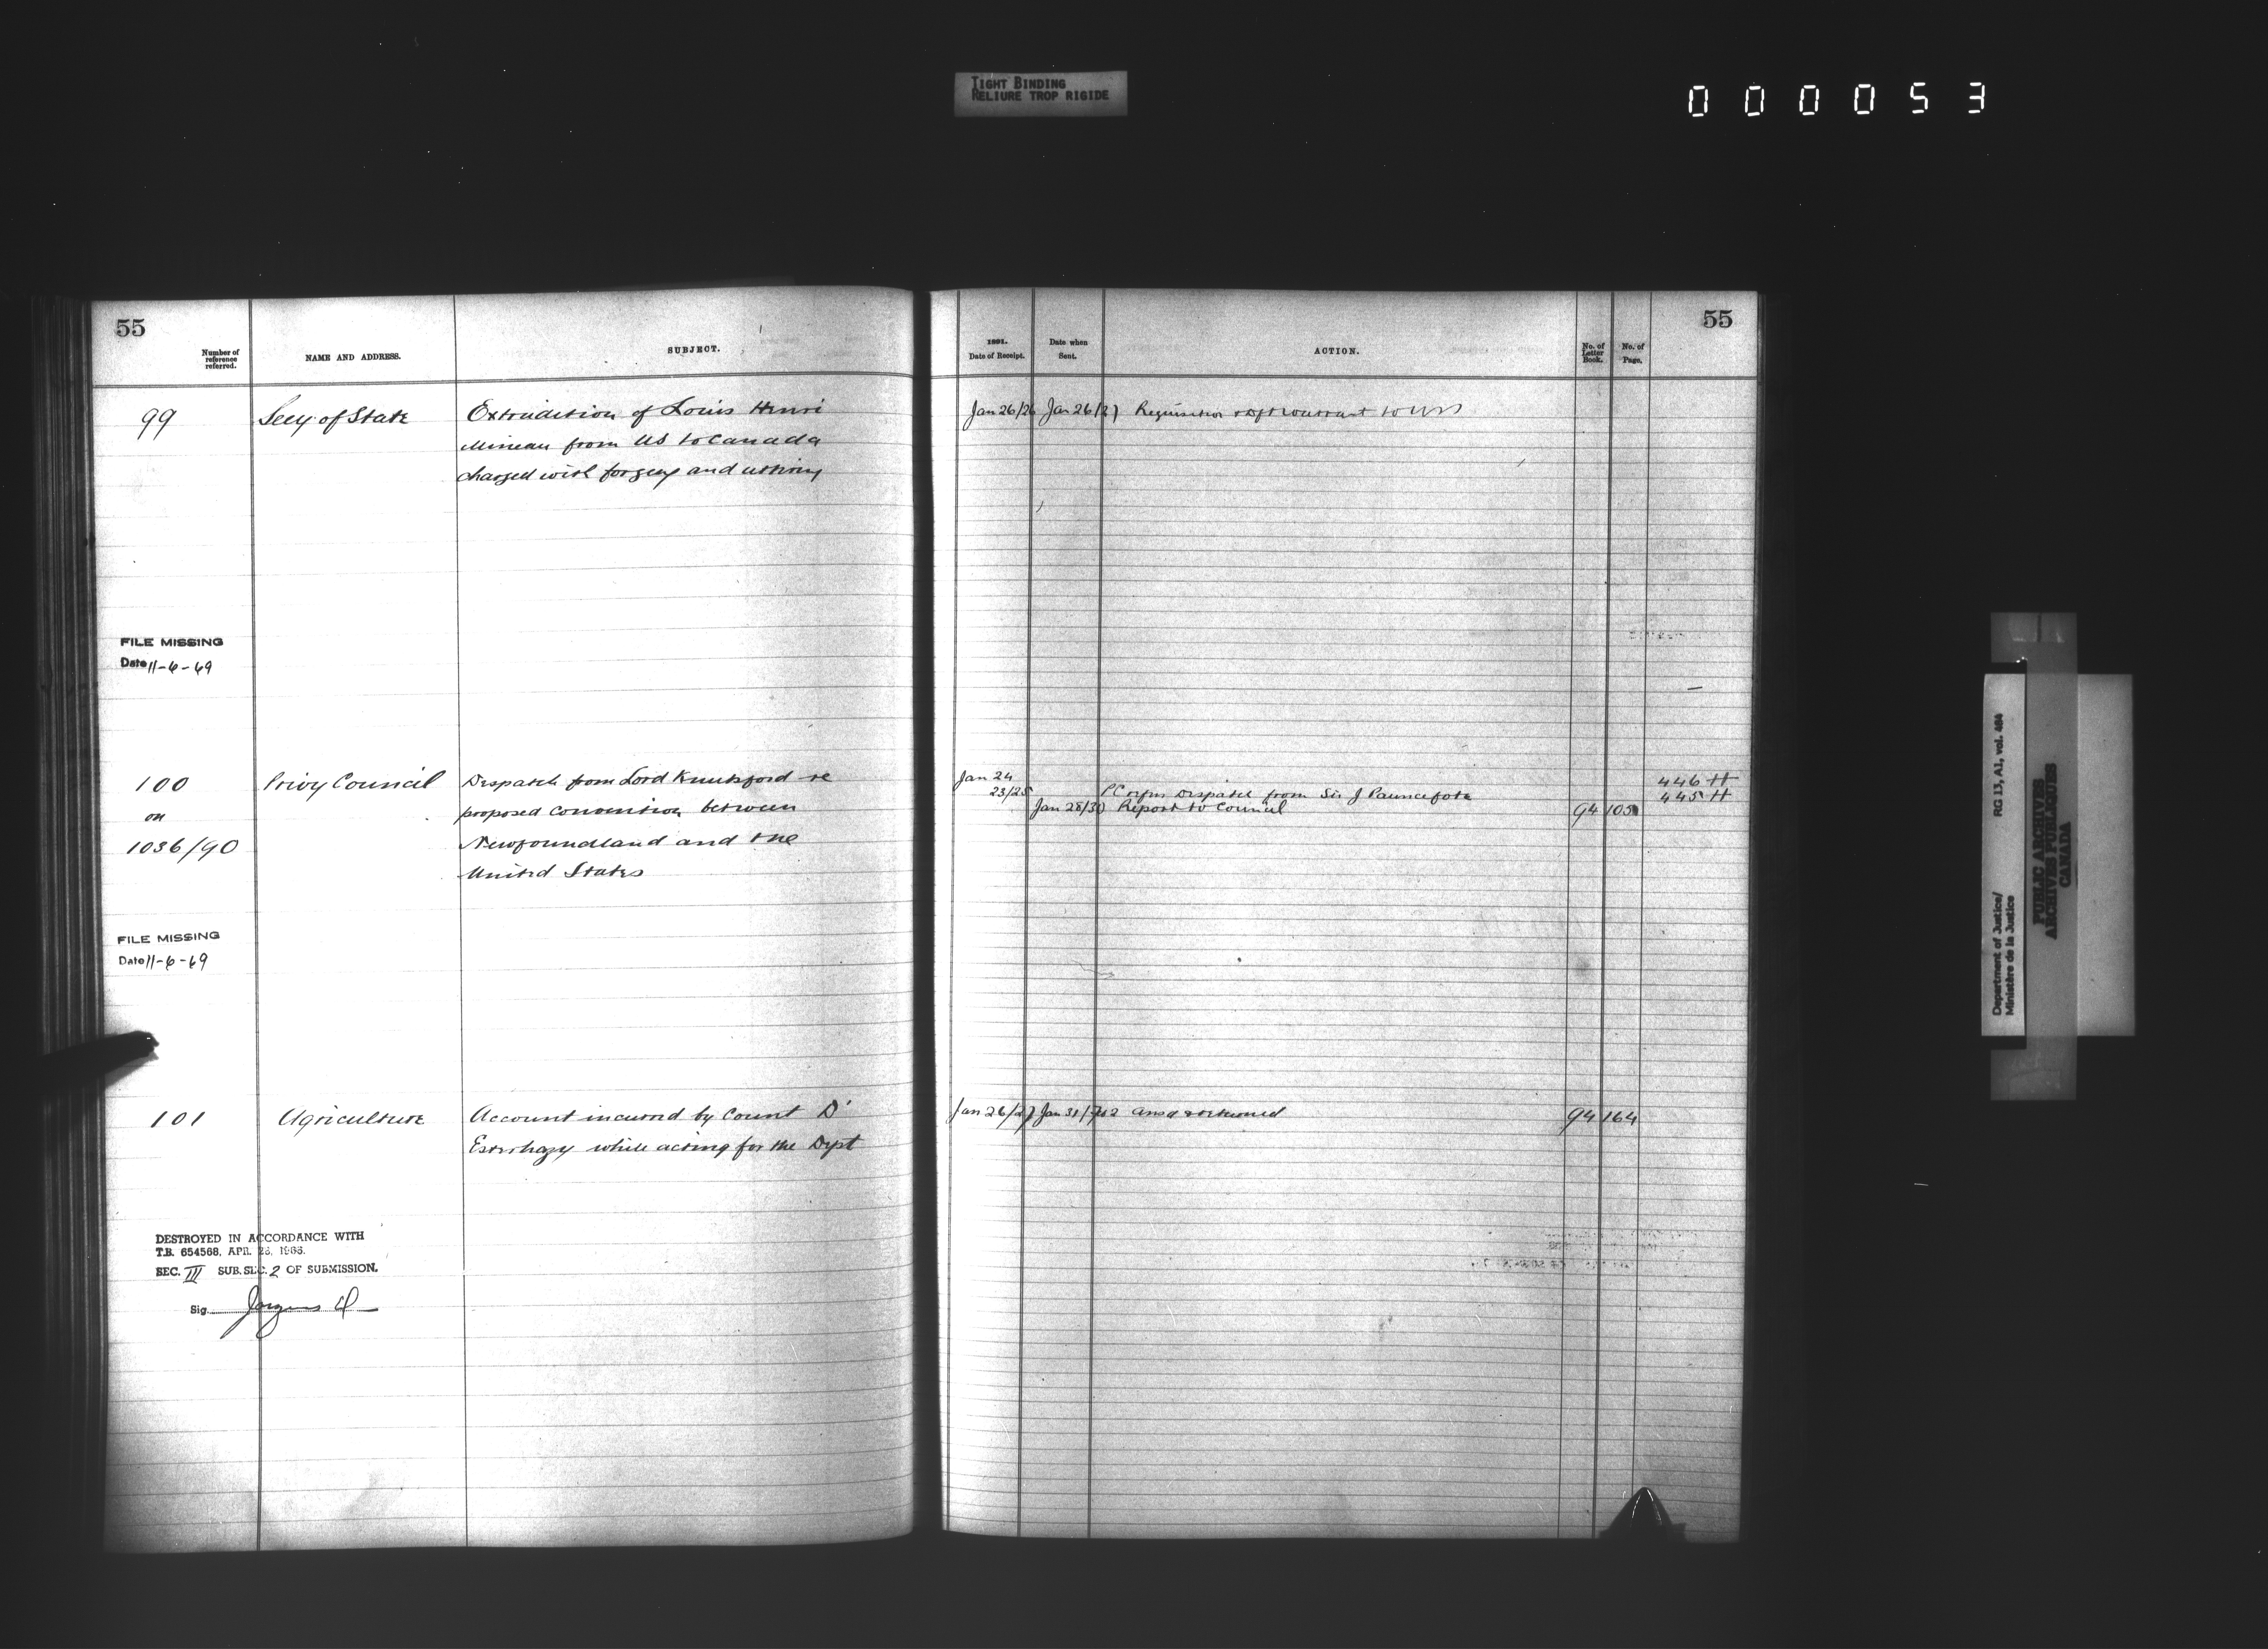 TIGHT BINDING
RELIURE TROP RIGIDE
000053
55
Number of
reference
referred.
NAME AND ADDRESS.
SUBJECT.
99
Secy of State
Extradition of Louis Henri
Mineau from US to Canada
charged with forgery and uttering
FILE MISSING
Date 11-6-69
100
on
1036/90
Privy Council
Despatch from Lord Knutsford re
proposed convention between
Newfoundland and the
United States
FILE MISSING
Date 11-6-69
101
Agriculture
Account incurred by Count D'
Esterhazy while acting for the Dept
DESTROYED IN ACCORDANCE WITH
T.B. 654568, APR. 28, 1966.
SEC. III SUB. SEC. 2 OF SUBMISSION.
Sig.
55
1891.
Date of Receipt.
Date when
Sent.
ACTION.
No. of
Letter
Book.
No. of
Page.
Jan 26/26 Jan 26/27 Requisition warrant to
Jan 24
446 H
23/25 PC Despatch from Sir J Pauncefote 445 H
Jan 28/30 Report to Council 94 105
Jan 26/27 Jan 31/ Ansd & returned 94 164
Department of Justice/
Ministère de la Justice
RG 13, A1, vol. 484
PUBLIC ARCHIVES
ARCHIVES PUBLIQUES
CANADA